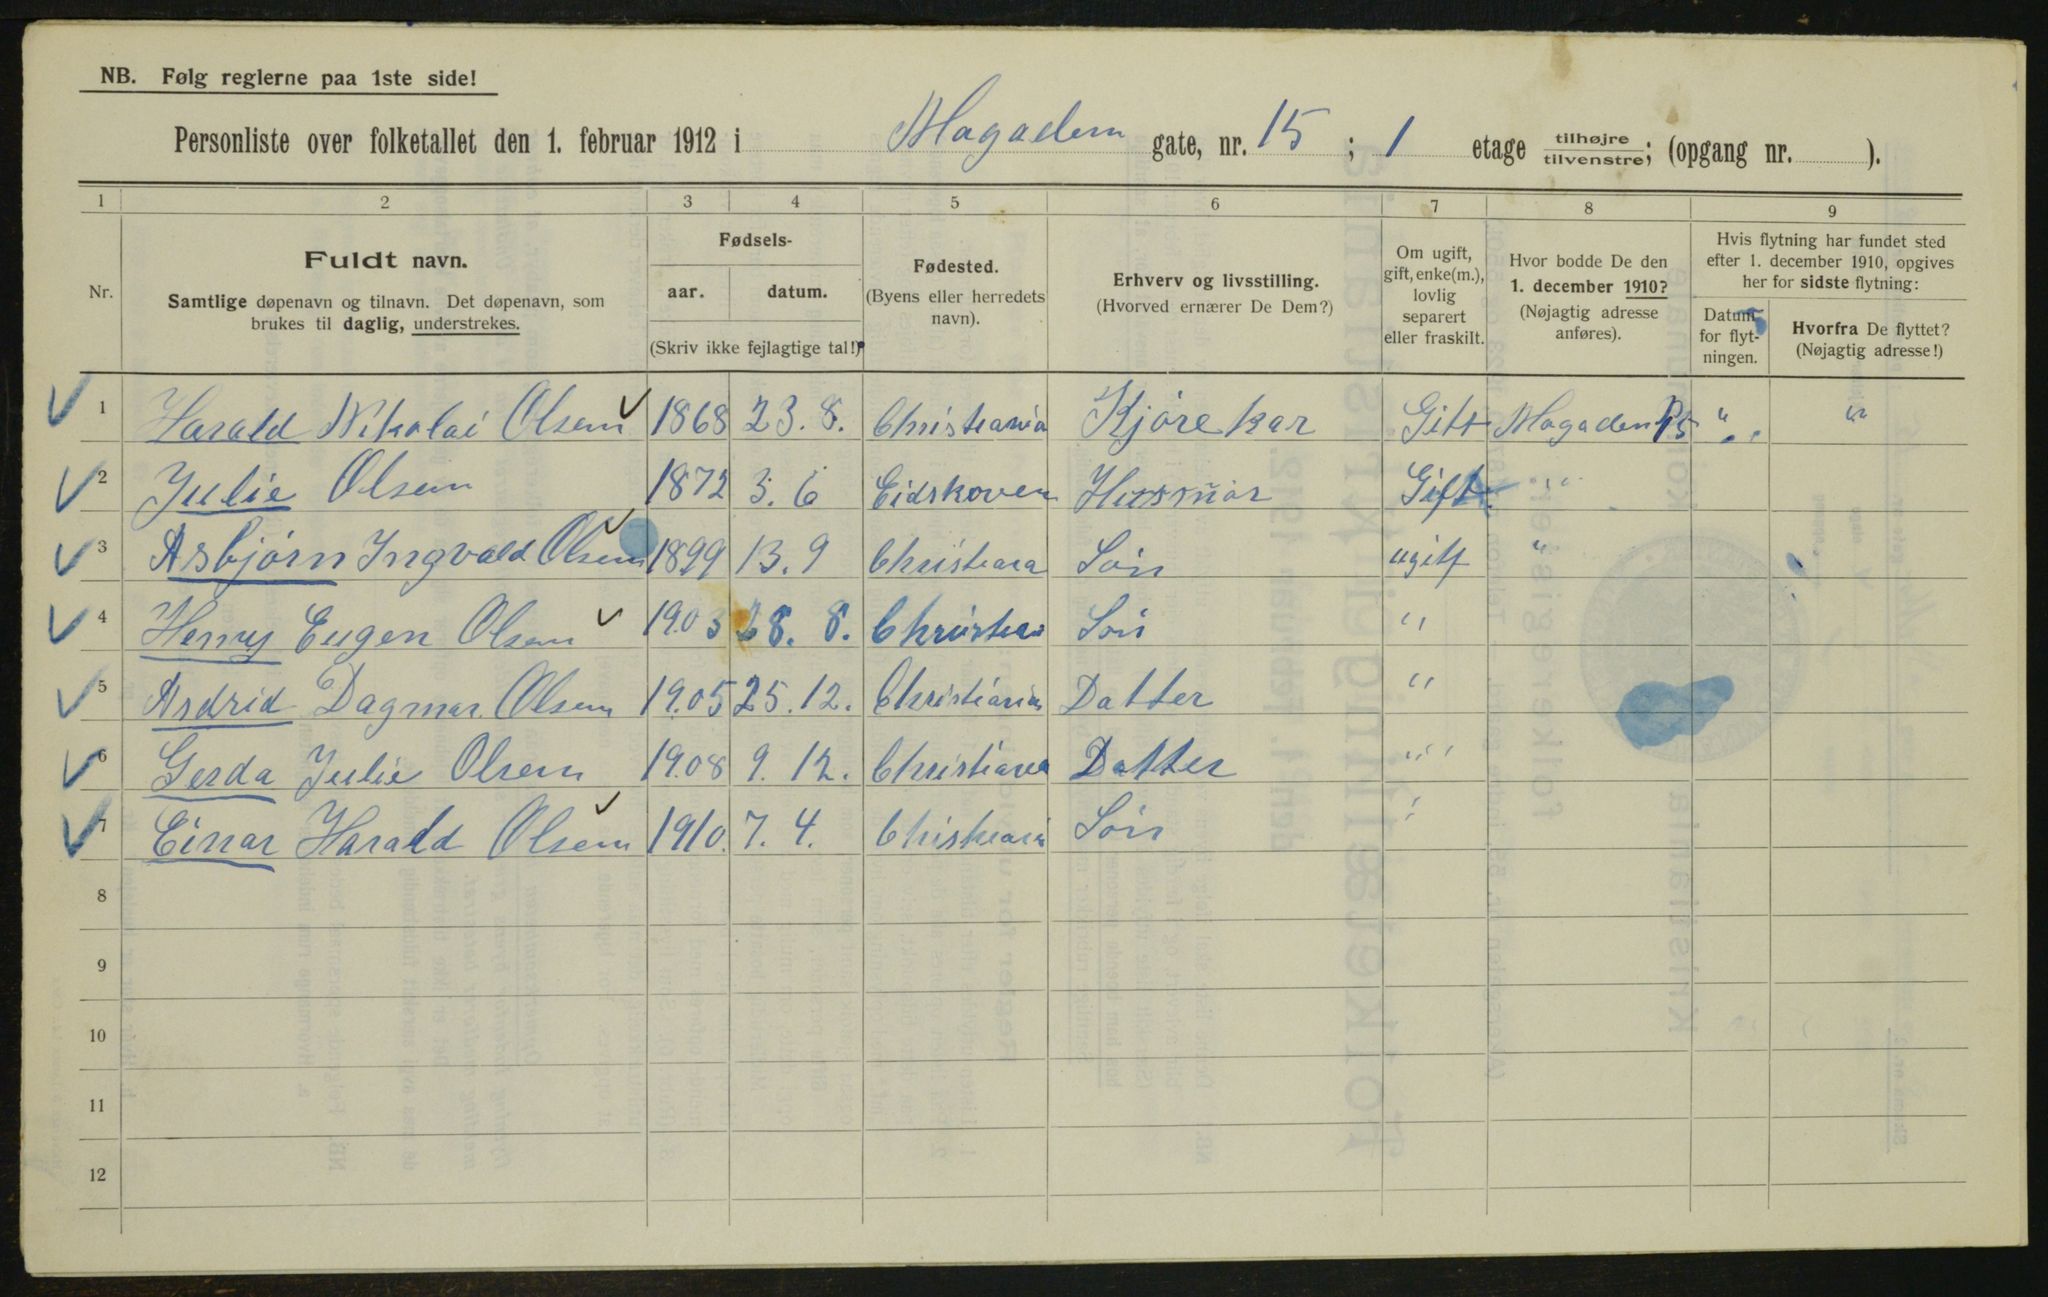 NB. Følg reglerne paa 1ste side!
Personliste over folketallet den 1. februar 1912 i Magadem gate, nr. 15 ; 1 etage tilhøjre tilvenstre; (opgang nr. ).
1 2 3 4 5 6 7 8 9
Nr.
Fuldt navn.
Samtlige døpenavn og tilnavn. Det døpenavn, som
brukes til daglig, understrekes.
Fødsels-
aar. datum.
(Skriv ikke fejlagtige tal!)
Fødested.
(Byens eller herredets
navn).
Erhverv og livsstilling.
(Hvorved ernærer De Dem?)
Om ugift,
gift, enke(m.),
lovlig
separert
eller fraskilt.
Hvor bodde De den
1. december 1910?
(Nøjagtig adresse
anføres).
Hvis flytning har fundet sted
efter 1. december 1910, opgives
her for sidste flytning:
Datum
for flyt-
ningen.
Hvorfra De flyttet?
(Nøjagtig adresse!)
1 Harald Nikolai Olsen 1868 23. 8. Christiania Kjørekar Gift Magaden 15 " "
2 Julie Olsen 1872 3. 6 Eidskoven Husmor Gift "
3 Asbjørn Ingvald Olsen 1899 13. 9 Christiana Søn ugift "
4 Henry Eugen Olsen 1903 28. 8. Christian Søn "
5 Asdrid Dagmar Olsen 1905 25. 12. Christiania Datter "
6 Gerda Julie Olsen 1908 9. 12. Christiania Datter "
7 Einar Harald Olsen 1910. 7. 4. Christiania Søn "
8
9
10
11
12